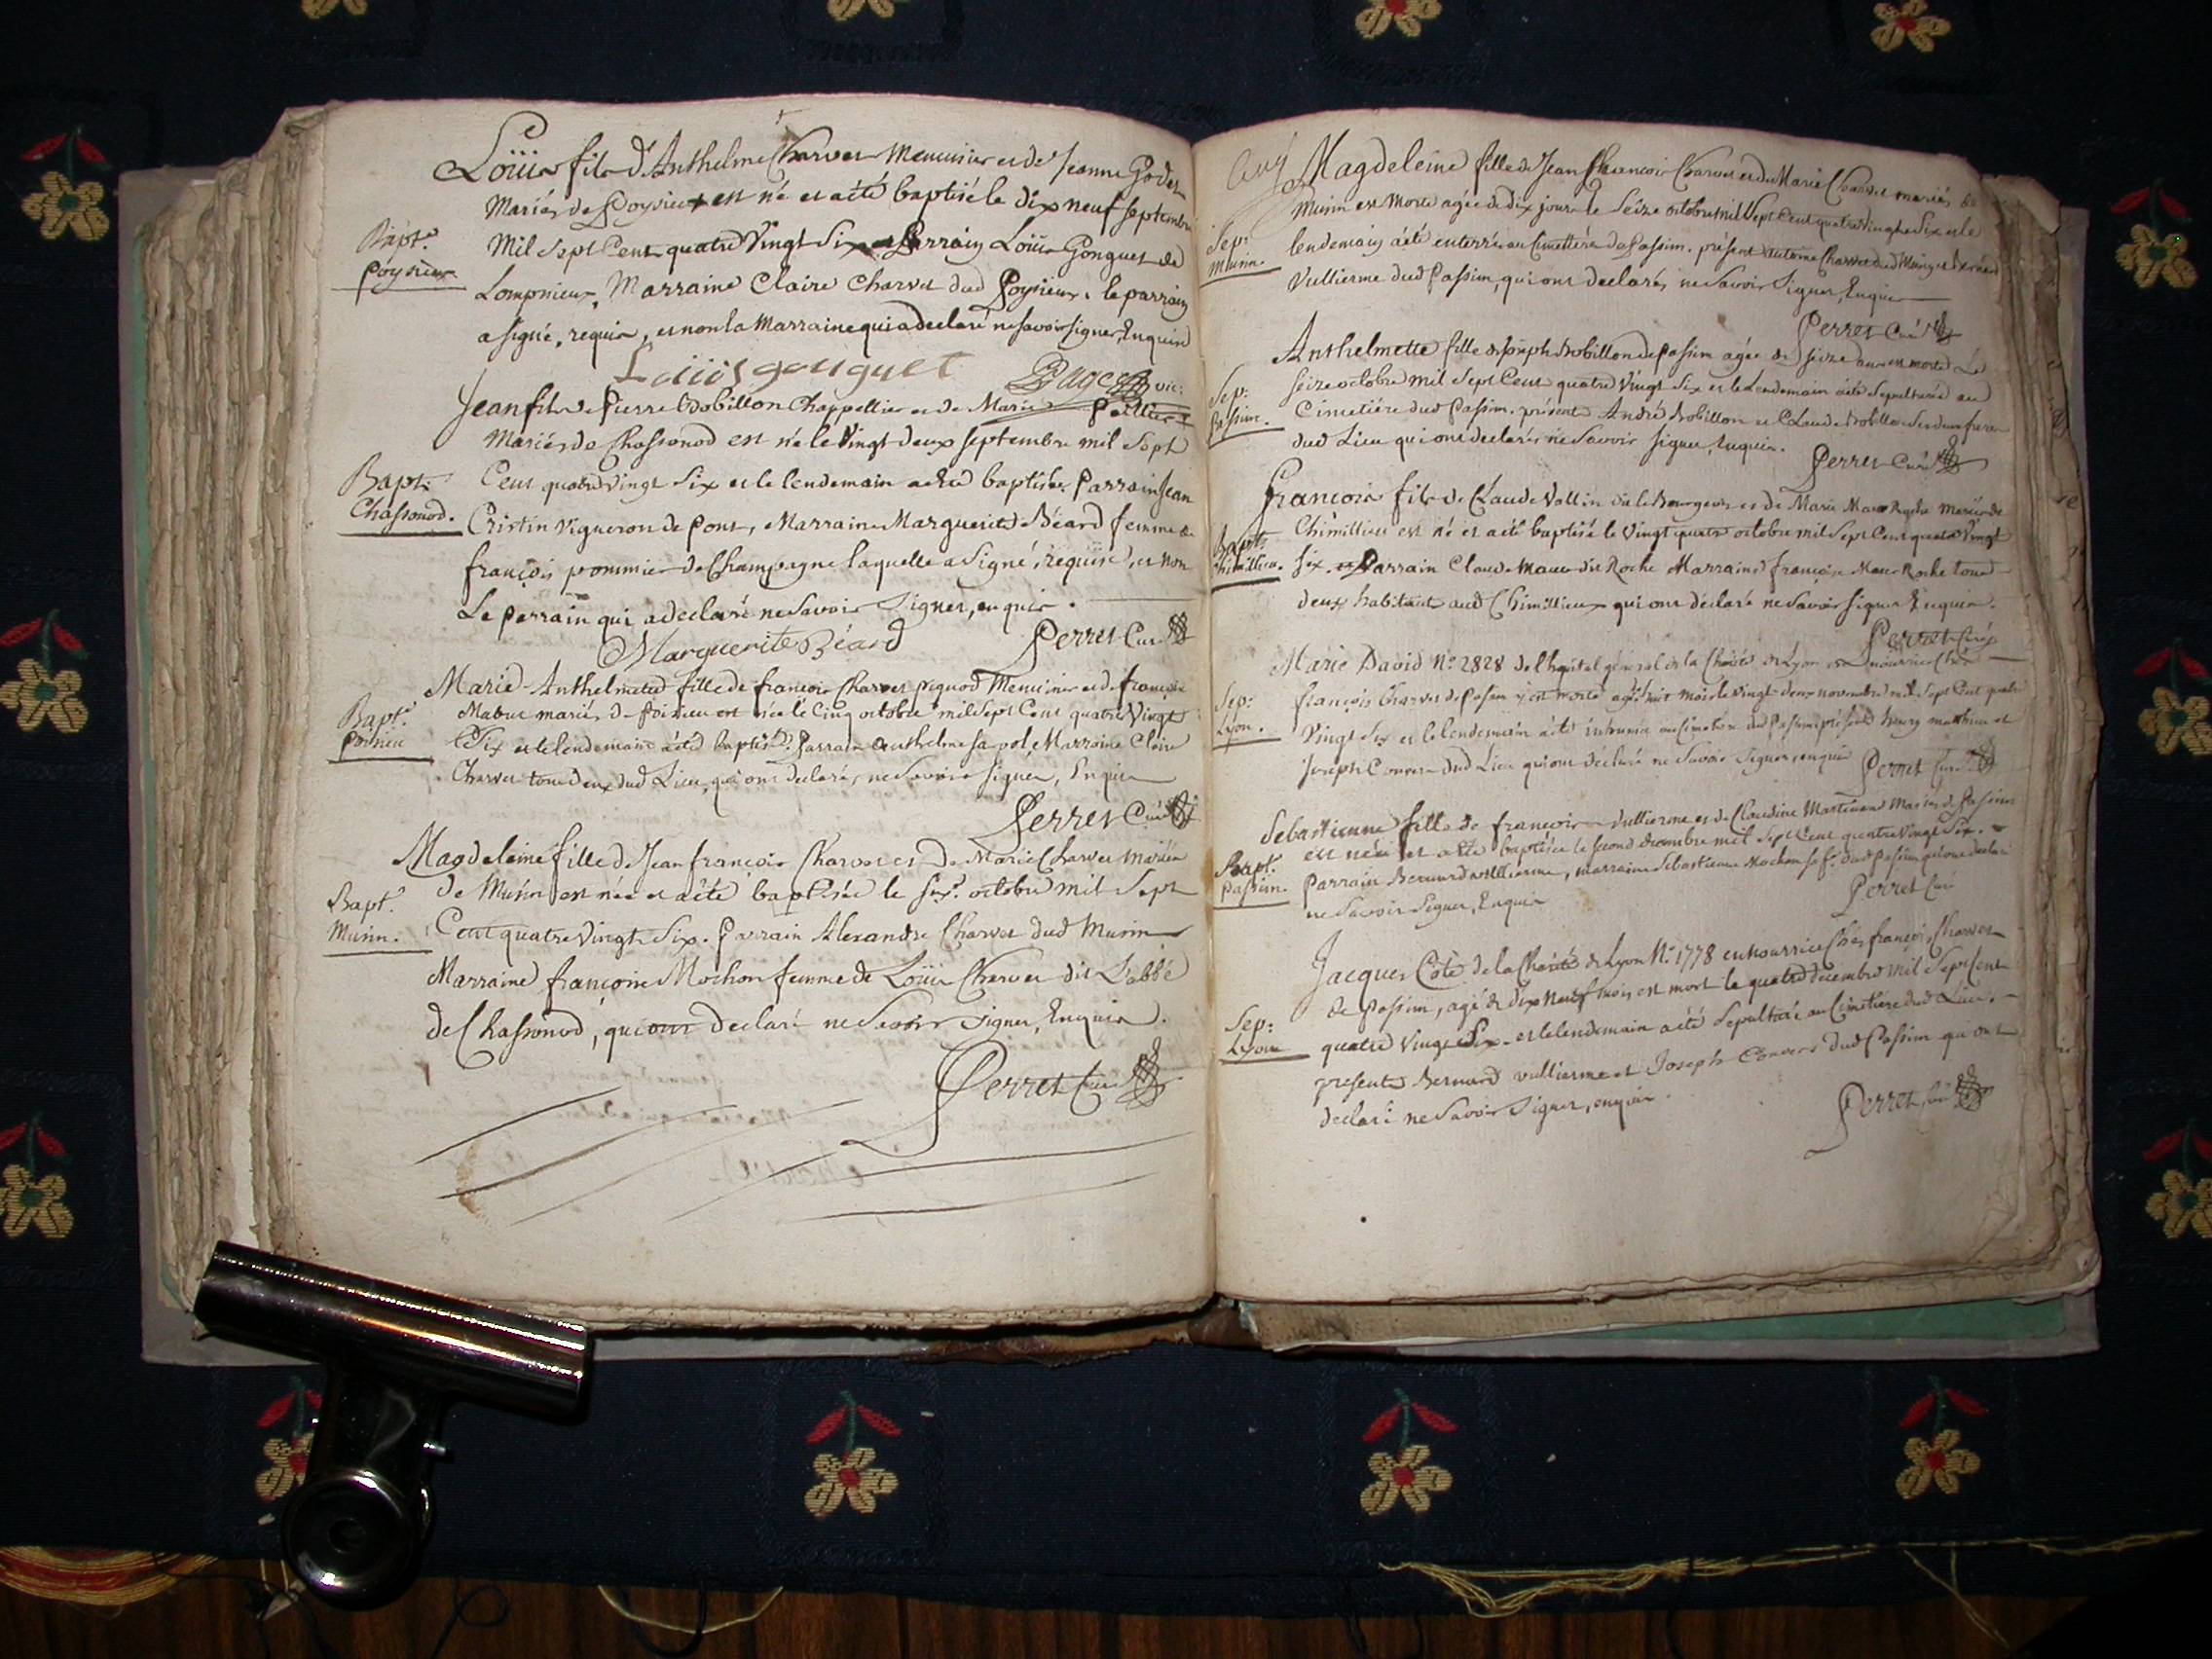 Loüis fils d'Anthelme Charvet Menuisier et de Jeanne Godet
Mariés de Poysieu est né et a été baptisé le dix neuf septembre
Bapt.
Poysieu
Mil Sept Cent quatre Vingt Six Parrain Loüis Gonguet de
Lompnieux, Marraine Claire Charvet dud Poysieux. le parrain
a signé, requis, et non la Marraine qui a declaré ne savoir signer, Enquise
Loüis gouguet
vic:
Jean fils de Pierre Robillon Chappellier et de Marie Pellier
Mariés de Chassonod est né le Vingt deux septembre mil Sept
Bapt:
Chassonod.
Cent quatre Vingt Six et le lendemain a été baptisé. Parrain Jean
Cristin Vigneron de Pont, Marraine Marguerite Béard femme de
françois pommier de Champagne laquelle a signé, requise, et non
Le parrain qui a declaré ne Savoir Signer, enquis.
Marguerite Béard
Perret Curé
Marie-Anthelmette fille de françois Charvet Menuisier et de françoise
Mabux mariés de est née le Cinq octobre mil Sept Cent quatre Vingt
Bapt.
Six et le lendemain a été baptisée. Parrain Anthelme Marraine Claire
Charvet tous deux dud Lieu, qui ont declarés ne Savoir Signer, Enquis
Perret Curé
Magdeleine fille de Jean françois Charvet et de Marie Charvet Mariés
de Musin est née et a été baptisée le six. octobre mil Sept
Bapt.
Musin.
Cent quatre Vingt Six. Parrain Alexandre Charvet dud Musin
Marraine françoise Mochon femme de Loüis Charvet dit L'abbé
de Chassonod, qui ont declaré ne Savoir Signer, Enquis.
Perret Curé
Magdeleine fille de Jean françois Charvet et de Marie Charvet mariés de
Musin est Morte agée de dix jours le Seize octobre mil Sept Cent quatre Vingt Six et le
Sep:
Musin
lendemain a été enterrée au Cimetière de Passin. présent Antoine Charvet dud
Vullierme dud Passin, qui ont declarés ne Savoir Signer, Enquis
Perret Curé
Anthelmette fille de Joseph Robillon de Passin agée de seize ans est morte Le
Sep:
Passin.
seize octobre mil Sept Cent quatre Vingt Six et le Lendemain a été Sepulturée au
Cimetière dud Passin. présents André Robillon et Claude Robillon freres
dud Lieu qui ont declarés ne Savoir Signer, Enquis.
Perret Curé
françois fils de Claude Vallin dit le Bourgeois et de Marie Roche Mariés de
Chimillieu est né et a été baptisé le Vingt quatre octobre mil Sept Cent quatre Vingt
Bapt:
Chimillieu.
Six. Parrain Claude dit Roche Marraine françoise Roche tous
deux habitants aud Chimillieux qui ont déclaré ne Savoir Signer Enquis.
Perret Curé
Marie David No 2828 de l'hopital général de la Charité de Lyon en nourrice Chés
Sep:
Lyon.
françois Charvet de Passin y est morte agée huit mois le Vingt deux novembre mil Sept Cent quatre
Vingt Six et le lendemain a été inhumée au Cimetière dud Passin présents henry et
Joseph Convers dud Lieu qui ont déclaré ne Savoir Signer, enquis
Perret Curé
Sebastienne fille de françois Vullierme et de Claudine Martinand Mariés de Passin
est née et a été baptisée le second decembre mil Sept Cent quatre Vingt Six.
Bapt.
Passin.
Parrain Bernard Vullierme, marraine Sebastienne Mochon dud Passin qui ont declaré
ne Savoir Signer, Enquis
Perret Curé
Jacques Côte de la Charité de Lyon No. 1778 en nourrice Chés françois Charvet
de Passin, agé de dix Neuf mois est mort le quatre decembre mil Sept Cent
Sep:
Lyon
quatre Vingt Six. et le lendemain a été Sepulturé au Cimetière dud Lieu.
presents Bernard Vullierme et Joseph Convers dud Passin qui ont
declaré ne Savoir Signer, enquis.
Perret Curé